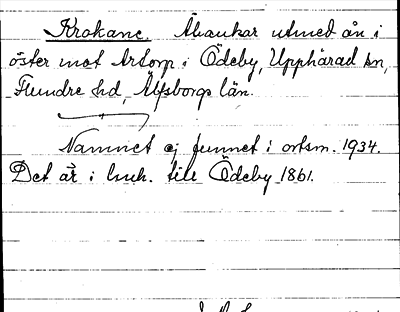 Krokane. Åbackar utmed ån i
öster mot Artorp i Ödeby, Upphärad sn,
Flundre hd, Älfsborgs län.
Namnet ej funnet i ortsm. 1934.
Det är i huh. till Ödeby 1861.